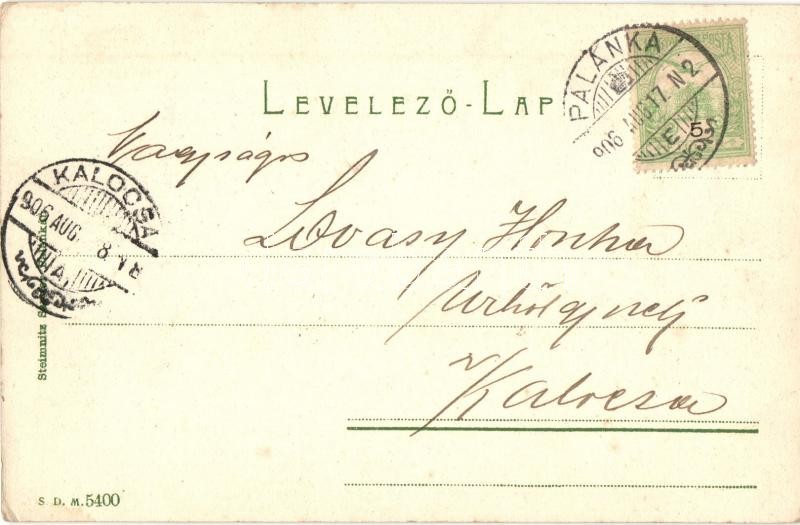 LEVELEZŐ-LAP
POSTA
5
PALÁNKA
906 AUG.17. N2
E
Nagyságos
Lovasy Honka
Urhölgynek
Kalocsa
KALOCSA
906 AUG. 8.
A
Steinmitz
S. D. M. 5400